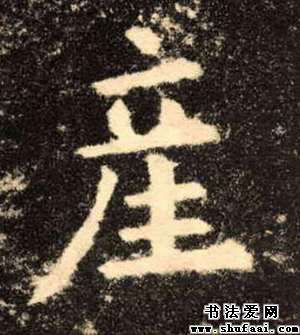 産
书法爱网
www.shufaai.com